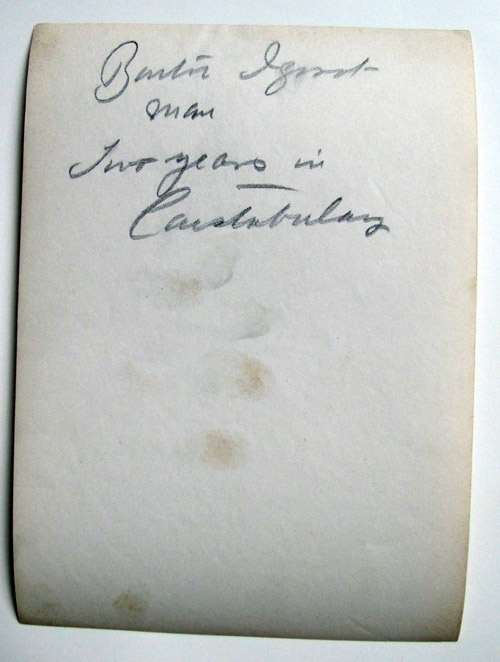 Bontoc Igorot
man
Two years in
Constabulary